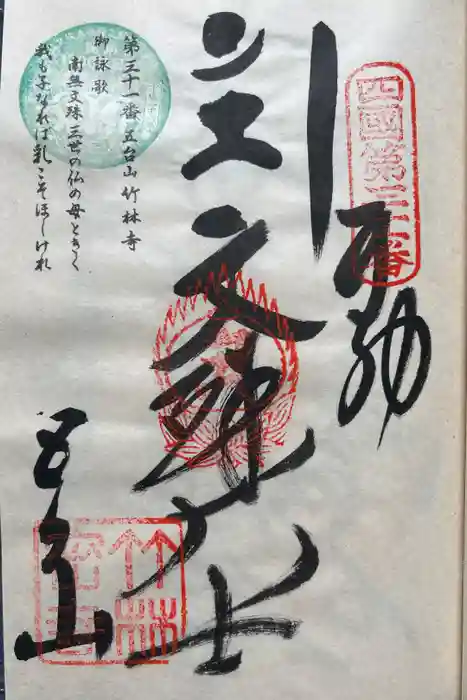 四國第三十一番
奉納
文殊大士
第三十一番 五台山 竹林寺
御詠歌
南無文殊 三世の仏の母ときく
我も子なれば乳こそほしけれ
五台山
竹林